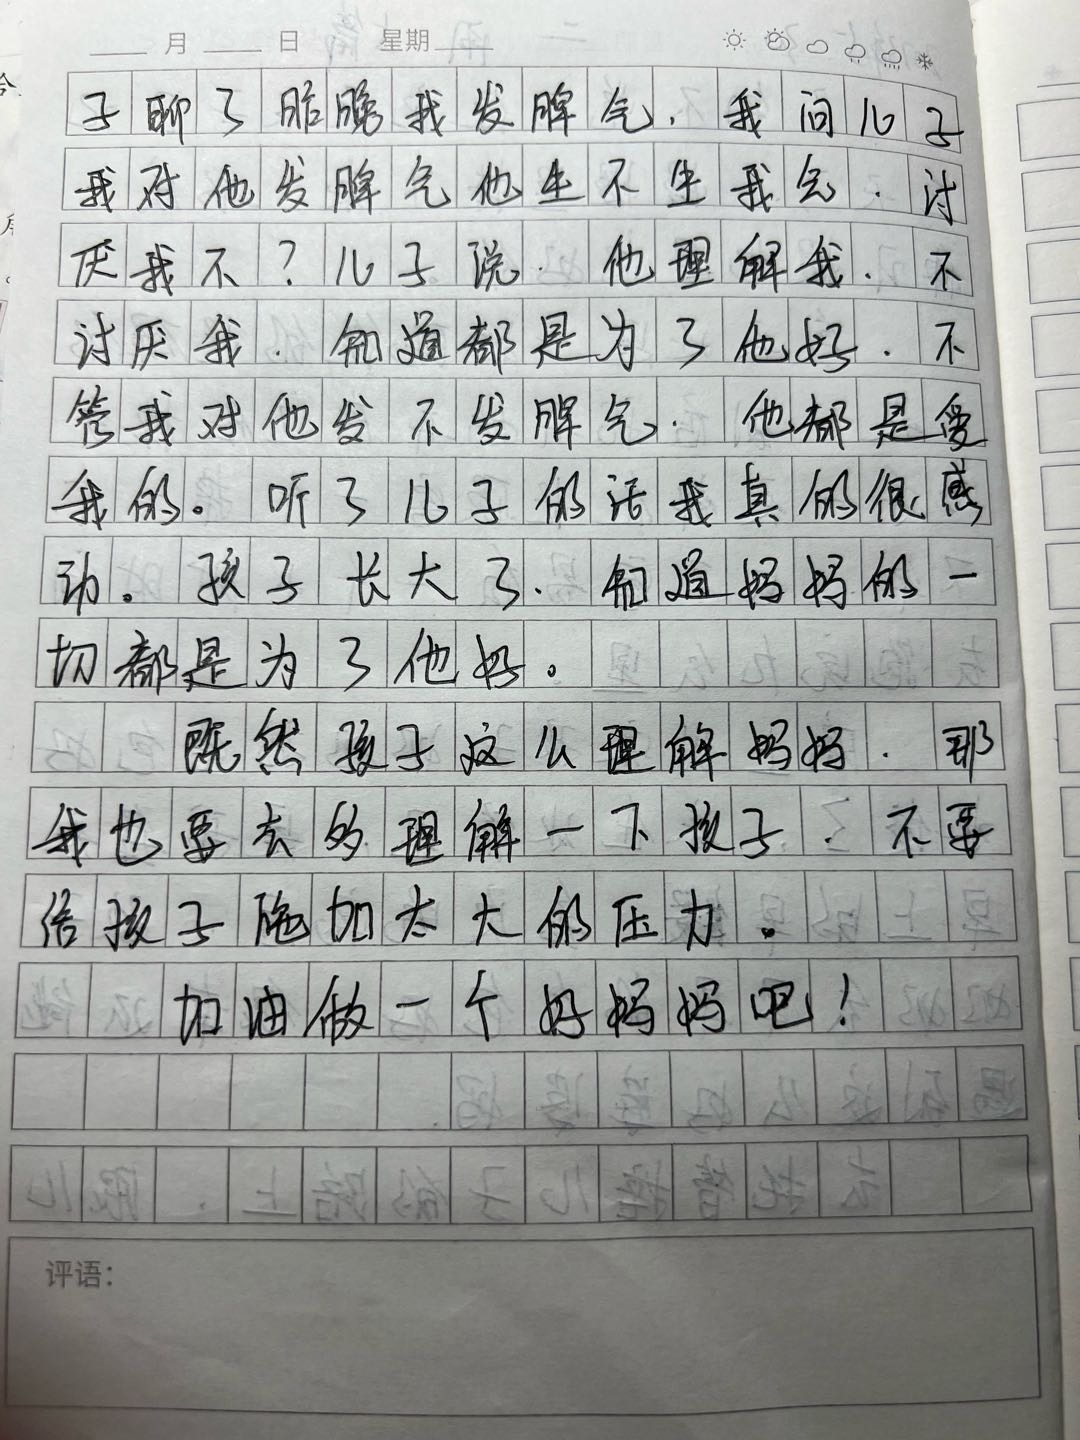 月 日 星期
子聊了昨晚我发脾气，我问儿子
我对他发脾气他生不生我气，讨
厌我不？儿子说，他理解我，不
讨厌我，知道都是为了他好，不
管我对他发不发脾气，他都是爱
我的。听了儿子的话我真的很感
动。孩子长大了，知道妈妈的一
切都是为了他好。
既然孩子这么理解妈妈，那
我也要去多理解一下孩子，不要
给孩子施加太大的压力。
加油做一个好妈妈吧！
评语：